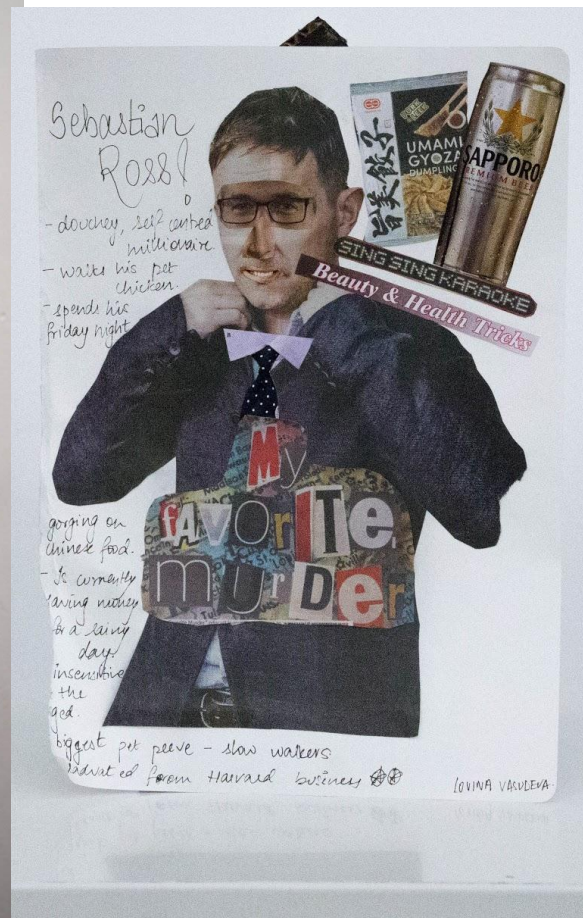 Sebastian
Ross!
- douchey, self centred
millionaire
- walks his pet
chicken.
- spends his
friday night
gorging on
chinese food.
- Is currently
saving money
for a rainy
day.
insensitive
the
aged.
biggest pet peeve - slow walkers
from Harvard business
LOVINA VASUDEVA
旨美餃子
UMAMI
GYOZA
DUMPLING
SAPPORO
PREMIUM BEER
SING SING KARAOKE
Beauty & Health Tricks
My
fAvorITe
murDer